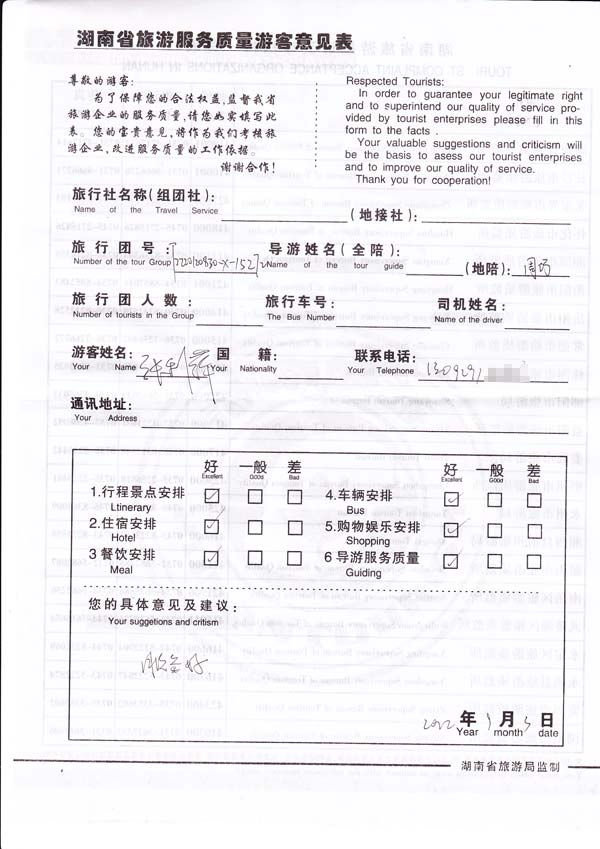 湖南省旅游服务质量游客意见表
尊敬的游客:
为了保障您的合法权益,监督我省
旅游企业的服务质量,请您如实填写此
表。您的宝贵意见,将作为我们考核旅
游企业,改进服务质量的工作依据。
谢谢合作!
Respected Tourists:
In order to guarantee your legitimate right
and to superintend our quality of service pro-
vided by tourist enterprises please fill in this
form to the facts .
Your valuable suggestions and criticism will
be the basis to asess our tourist enterprises
and to improve our quality of service.
Thank you for cooperation!
旅行社名称(组团社): (地接社):
Name of the Travel Service
旅行团号: 导游姓名(全陪): (地陪): 周巧
Number of the tour Group Name of the tour guide
旅行团人数: 旅行车号: 司机姓名:
Number of tourists in the Group The Bus Number Name of the driver
游客姓名: 国籍: 联系电话: 1309291
Your Name Your Nationality Your Telephone
通讯地址:
Your Address
好 一般 差 好 一般 差
Excellent Good Bad Excellent Good Bad
1.行程景点安排 4.车辆安排
Ltinerary Bus
2.住宿安排 5.购物娱乐安排
Hotel Shopping
3 餐饮安排 6 导游服务质量
Meal Guiding
您的具体意见及建议:
Your suggetions and critism
服务好
2012 年 9 月 3 日
Year month date
湖南省旅游局监制